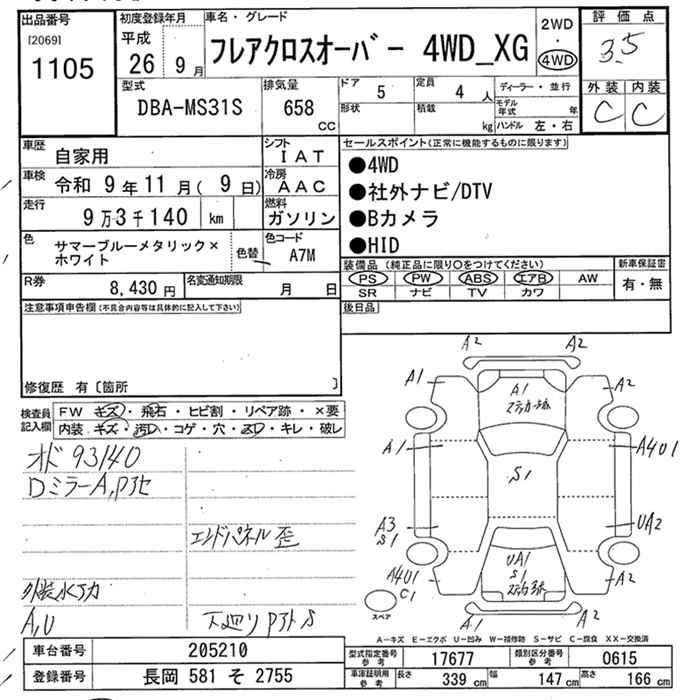 出品番号
[2069]
1105
初度登録年月
平成
26 9 月
車名・グレード
フレアクロスオーバー 4WD_XG
2WD
・
4WD
評価点
3.5
外装 内装
C C
型式
DBA-MS31S
排気量
658
CC
ドア
5
定員
4 人
形状
積載
kg
ディーラー・並行
モデル年式 年
ハンドル 左・右
車歴
自家用
シフト
IAT
車検
令和 9年11月( 9日)
冷房
AAC
走行
9万3千140 km
燃料
ガソリン
色
サマーブルーメタリック×
ホワイト
色替
色コード
A7M
R券
8,430 円
名変通知期限
月 日
セールスポイント(正常に機能するものに限ります)
●4WD
●社外ナビ/DTV
●Bカメラ
●HID
装備品(純正品に限り○をつけてください)
PS PW ABS エアB AW
SR ナビ TV カワ
新車保証書
有・無
後日品
注意事項申告欄(不具合内容等は具体的に記入して下さい)
修復歴 有〔箇所 〕
検査員
記入欄
FW キズ・飛石・ヒビ割・リペア跡・×要
内装 キズ・汚レ・コゲ・穴・スレ・キレ・破レ
オド 93140
Dミラー A,Pアセ
エンドパネル 歪
外装水アカ
A,U
下廻り Pアト S
A2 A2
A1 A1 A2
A1 S1 A4U1
A3 UA2
S1
UA1
A4U1 S1 A2
C1
スペア
A1 A2
A―キズ E―エクボ U―凹み W―補修跡 S―サビ C―腐食 XX―交換済
車台番号
205210
登録番号
長岡 581 そ 2755
型式指定番号
参考
17677
類別区分番号
参考
0615
車庫証明用
参考
長さ 339 cm 幅 147 cm 高さ 166 cm